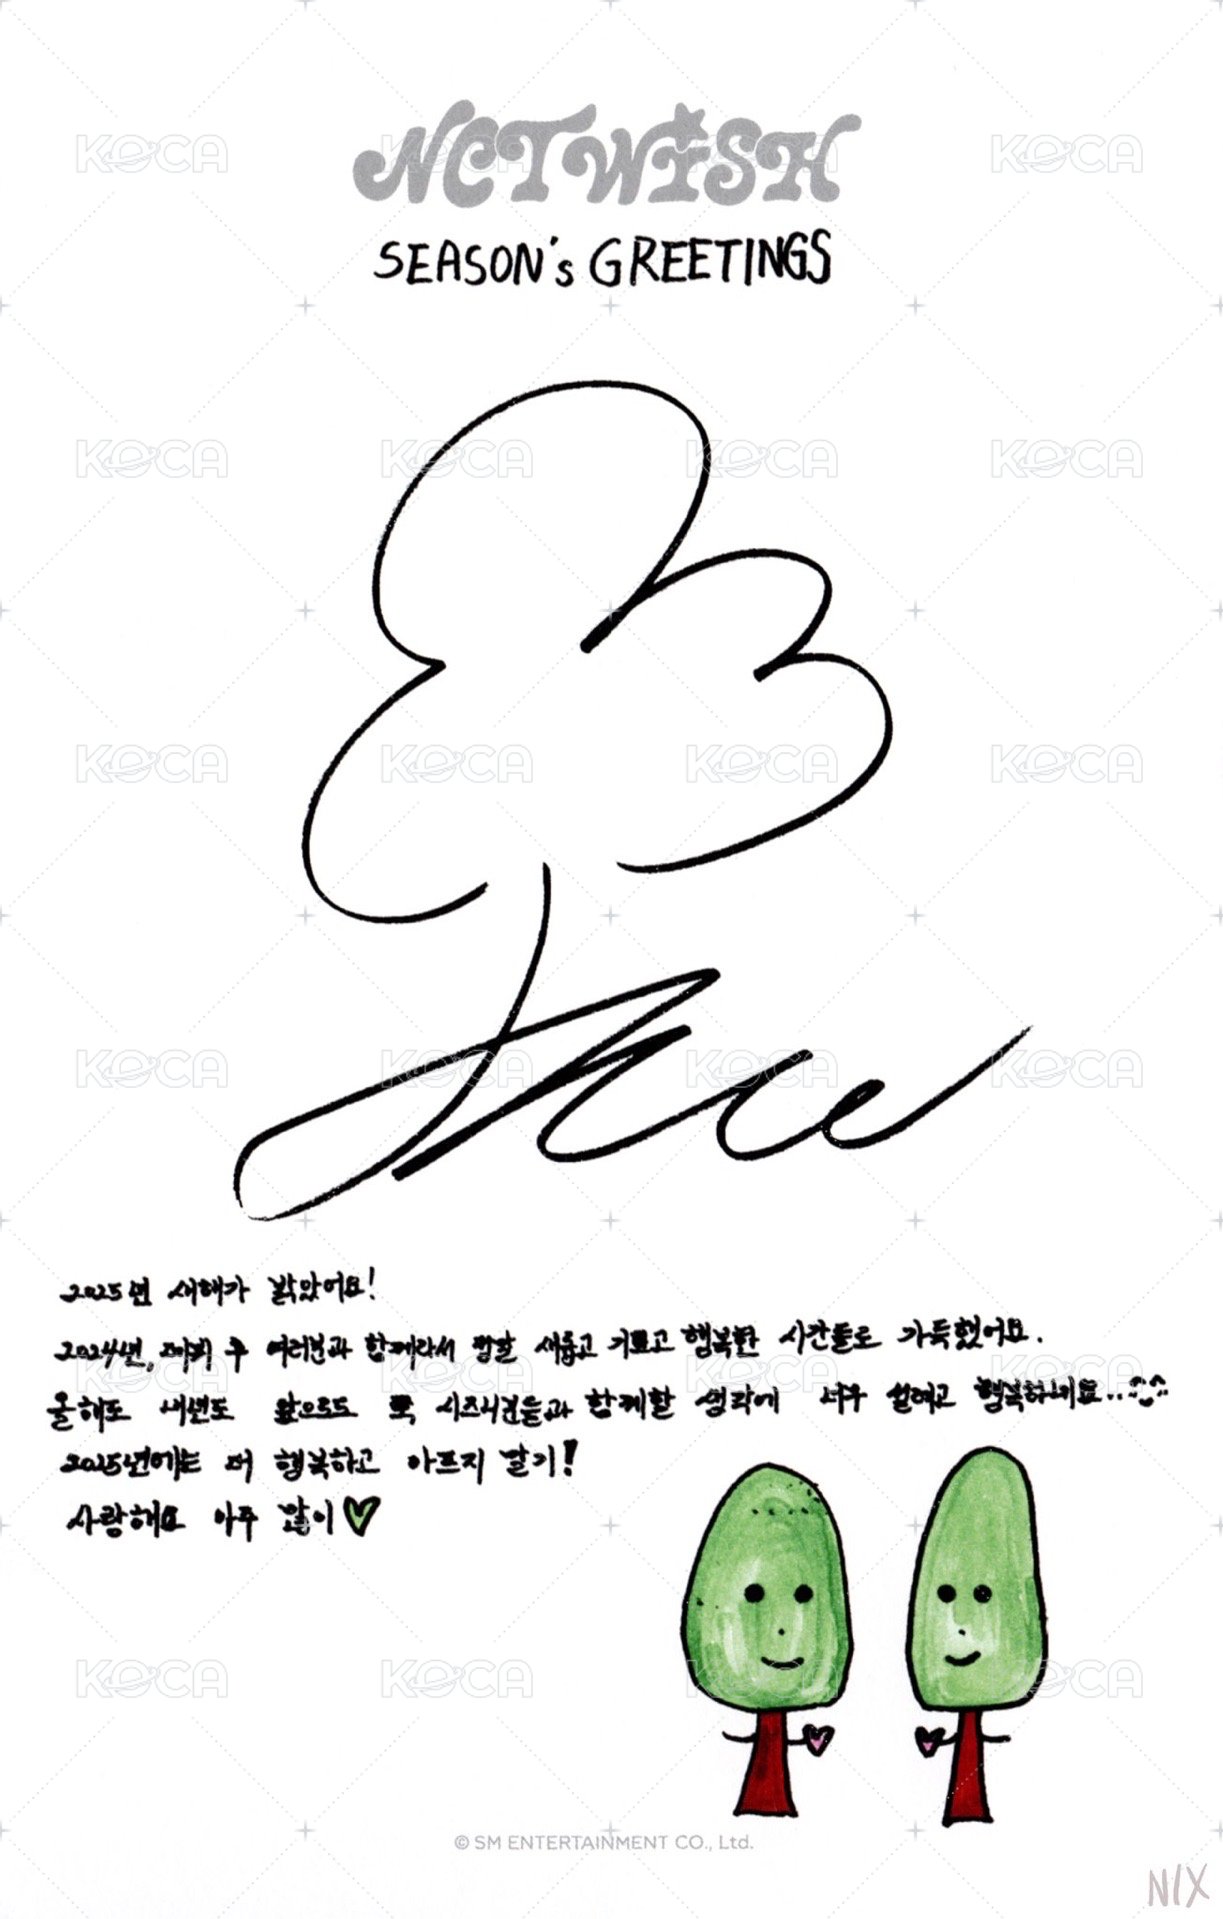 NCT WISH
SEASON's GREETINGS
2025년 새해가 밝았어요!
2024년, 데뷔 후 여러분과 함께라서 정말 새롭고 기쁘고 행복한 시간들로 가득했어요.
올해도 내년도 앞으로도 쭉 시즈니분들과 함께할 생각에 너무 설레고 행복하네요..
2025년에는 더 행복하고 아프지 말기!
사랑해요 아주 많이
© SM ENTERTAINMENT CO., Ltd.
N/X
KOCA